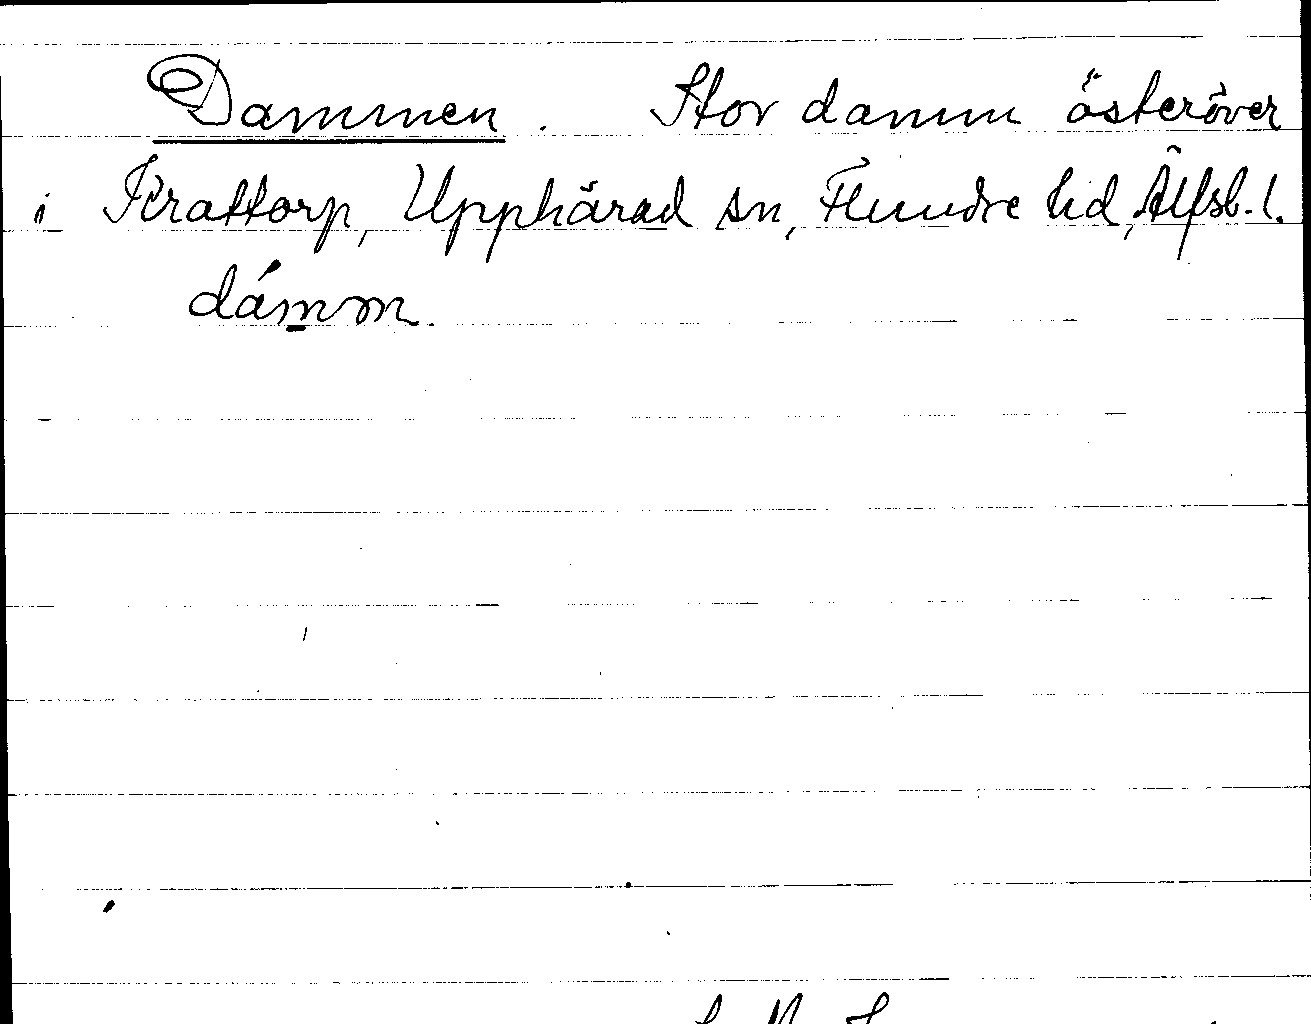 Dammen. Stor damm österöver
i Krattorp, Upphärad sn, Flundre hd, Älfsb. l.
dámm.